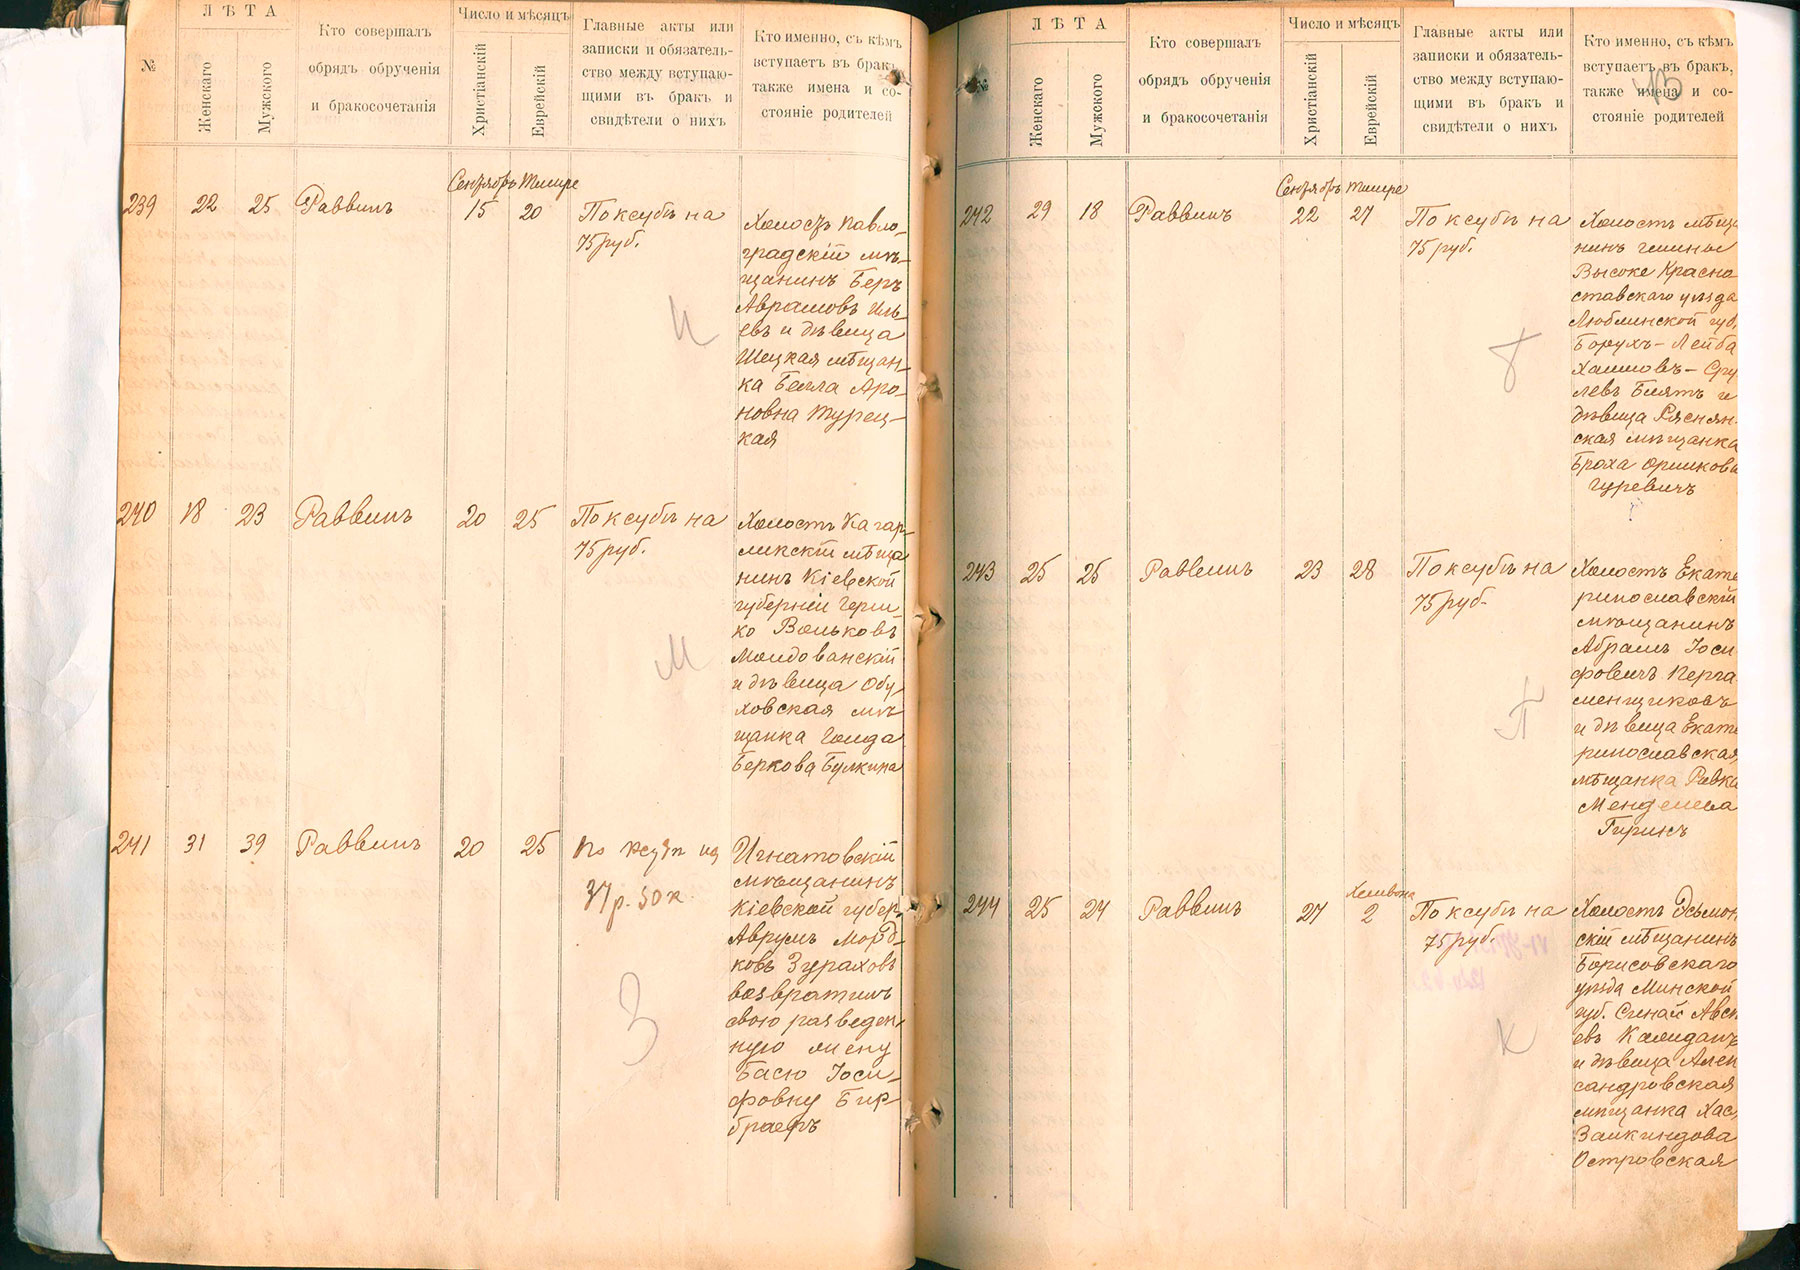 Л Ѣ Т А
№
Женскаго
Мужского
Кто совершалъ
обрядъ обрученія
и бракосочетанія
Число и мѣсяцъ
Христіанскій
Еврейскій
Главные акты или
записки и обязатель-
ство между вступаю-
щими въ бракъ и
свидѣтели о нихъ
Кто именно, съ кѣмъ
вступаетъ въ бракъ,
также имена и со-
стояніе родителей
Сентябрь Тишре
239 22 25 Раввинъ 15 20 По ксубѣ на
75 руб.
Холостъ Павло-
градскій мѣ-
щанинъ Беръ
Аврамовъ Иль-
евъ и дѣвица
Шецкая мѣщан-
ка Бейла Аро-
новна Турец-
кая
И
240 18 23 Раввинъ 20 25 По ксубѣ на
75 руб.
Холостъ Кагар-
ликскій мѣща
нинъ Кіевской
губерніи Герш-
ко Вольковъ
Молдованскій
и дѣвица Обу-
ховская мѣ
щанка Голда
Беркова Булкина
М
241 31 39 Раввинъ 20 25 по ксубѣ на
37 р. 50 к.
Игнатовскій
мѣщанинъ
Кіевской губер.
Аврумъ Морд-
ковъ Зураховъ
возвратилъ
свою разведен-
ную жену
Басю Іоси-
фовну Бир-
браеръ
З
Л Ѣ Т А
№
Женскаго
Мужского
Кто совершалъ
обрядъ обрученія
и бракосочетанія
Число и мѣсяцъ
Христіанскій
Еврейскій
Главные акты или
записки и обязатель-
ство между вступаю-
щими въ бракъ и
свидѣтели о нихъ
Кто именно, съ кѣмъ
вступаетъ въ бракъ,
также имена и со-
стояніе родителей
Сентябрь Тишре
242 29 18 Раввинъ 22 27 По ксубѣ на
75 руб.
Холостъ мѣща
нинъ гмины
Высоке Красно
ставскаго уѣзда
Люблинской губ.
Борухъ-Лейба
Хаимовъ-Сру
левъ Биятъ и
дѣвица Ряснян-
ская мѣщанка
Броха Оршкова
Гуревичъ
Б
243 25 25 Раввинъ 23 28 По ксубѣ на
75 руб.
Холостъ Екате
ринославскій
мѣщанинъ
Абрамъ Іоси
фовичъ Перга
менщиковъ
и дѣвица Екате
ринославская
мѣщанка Ривка
Менделева
Гиринъ
П
Хешвона
244 25 24 Раввинъ 27 2 По ксубѣ на
75 руб.
Холостъ Эсьмон
скій мѣщанинъ
Борисовскаго
уѣзда Минской
губ. Синай Авсѣ
евъ Каждапъ
и дѣвица Алек
сандровская
мѣщанка Хас.
Залкиндова
Островская
К